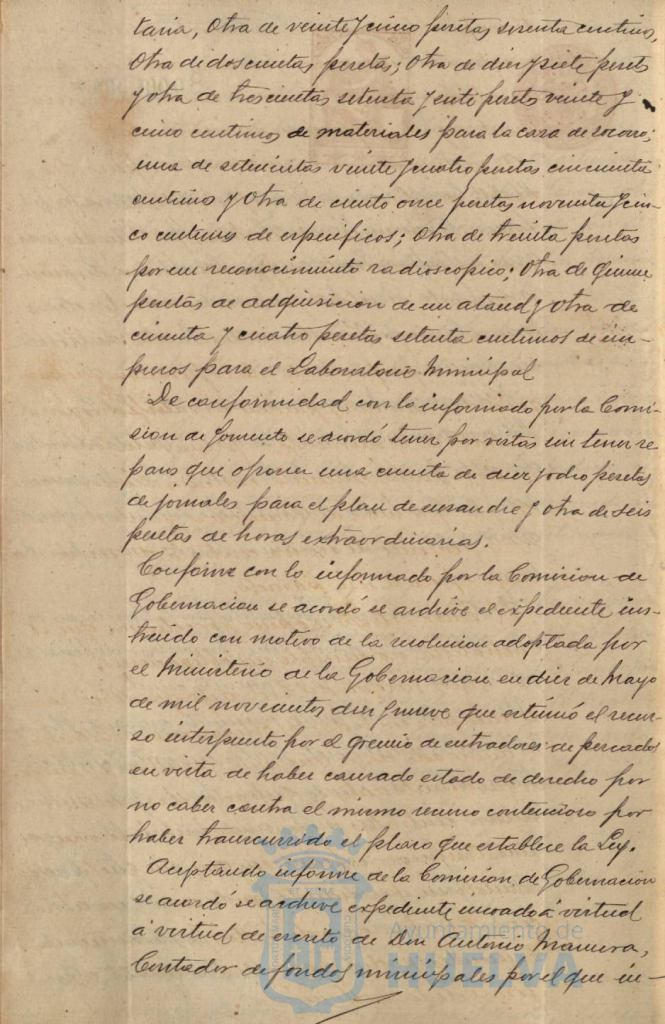 taria, Otra de veinte y cinco pesetas sesenta centimos,
Otra de doscientas pesetas; Otra de diez y siete pesetas
y otra de trescientas setenta y siete pesets veinte y
cinco centimos de materiales para la casa de socorro;
una de setecientas veinte y cuatro pesetas cincuenta
centimos y Otra de ciento once pesetas noventa y cin-
co centimos de especificos; Otra de treinta pesetas
por un reconocimiento radioscopico; Otra de quince
pesetas de adquisicion de un ataud y otra de
cincuenta y cuatro pesetas setenta centimos de im-
presos para el Laboratorio Municipal
De conformidad con lo informado por la Comi-
sion de fomento se acordó tener por vistas sin tener re
paros que oponer una cuenta de diez y ocho pesetas
de jornales para el plan de ensanche y otra de seis
pesetas de horas extraordinarias.
Conforme con lo informado por la Comision de
Gobernacion se acordó se archive el expediente ins-
truido con motivo de la resolucion adoptada por
el Ministerio de la Gobernacion en diez de Mayo
de mil novecientos diez y nueve que estimó el recur-
so interpuesto por el gremio de entradores de pescados
en vista de haber causado estado de derecho por
no caber contra el mismo recurso contencioso por
haber transcurrido el plazo que establece la Ley.
Aceptando informe de la Comision de Gobernacion
se acordó se archive expediente incoado á virtud
á virtud de escrito de Don Antonio
Contador de fondos municipales por el que in-
Ayuntamiento de
HUELVA